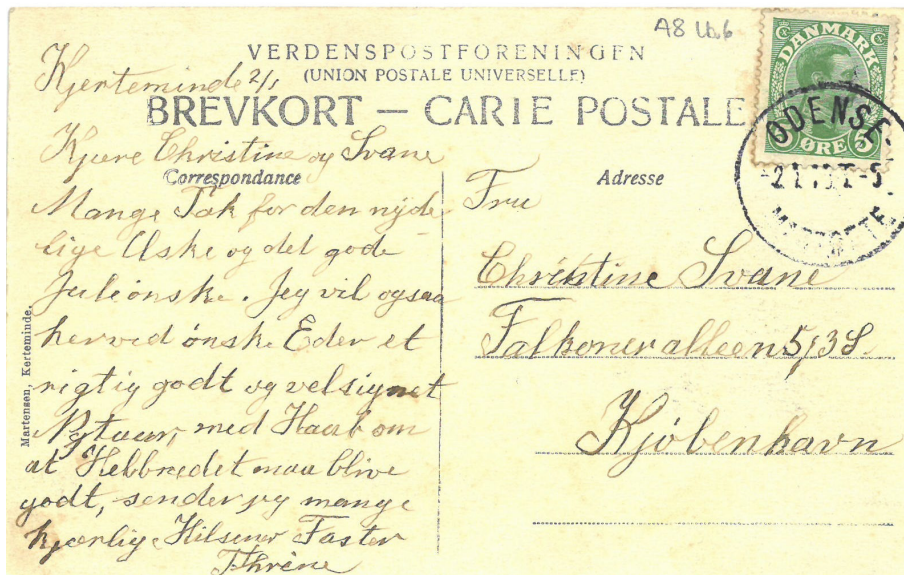 A8 Ub6
VERDENSPOSTFORENINGEN
(UNION POSTALE UNIVERSELLE)
BREVKORT — CARTE POSTALE
DANMARK
ØRE 5
ODENSE
Kjerteminde 2/1
Kjære Christine og Svane
Correspondance
Mange Tak for den nyde
lige Æske og det gode
Juleønske. Jeg vil ogsaa
herved ønske Eder et
rigtig godt og velsignet
Nytaar, med Haab om
at Helbredet maa blive
godt, sender jeg mange
kjærlige Hilsener Faster
Thrine
Adresse
Fru
Christine Svane
Falkoneralleen 5/3S
Kjöbenhavn
Martensen, Kerteminde.